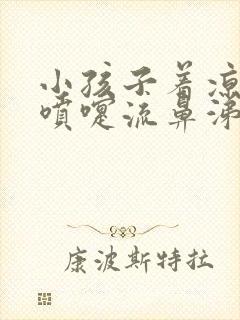 小孩子着凉
喷嚏流鼻涕
康波斯特拉